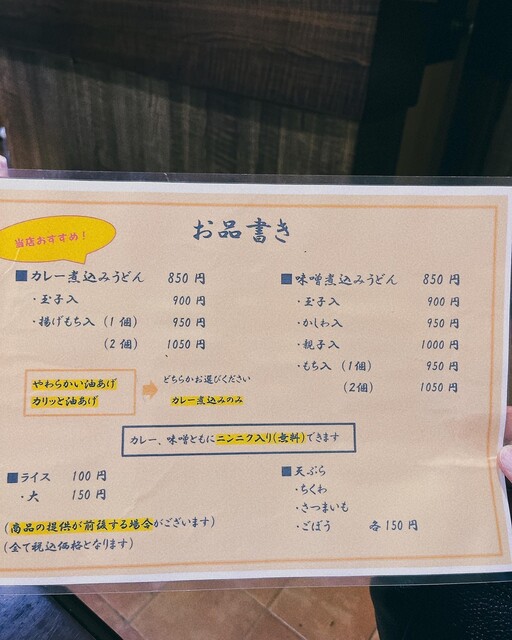 お品書き
当店おすすめ！
■カレー煮込みうどん 850円
・玉子入 900円
・揚げもち入（1個） 950円
（2個） 1050円
やわらかい油あげ
カリッと油あげ
どちらかお選びください
カレー煮込のみ
■味噌煮込みうどん 850円
・玉子入 900円
・かしわ入 950円
・親子入 1000円
・もち入（1個） 950円
（2個） 1050円
カレー、味噌ともにニンニク入り（無料）できます
■ライス 100円
・大 150円
（商品の提供が前後する場合がございます）
（全て税込価格となります）
■天ぷら
・ちくわ
・さつまいも
・ごぼう 各150円